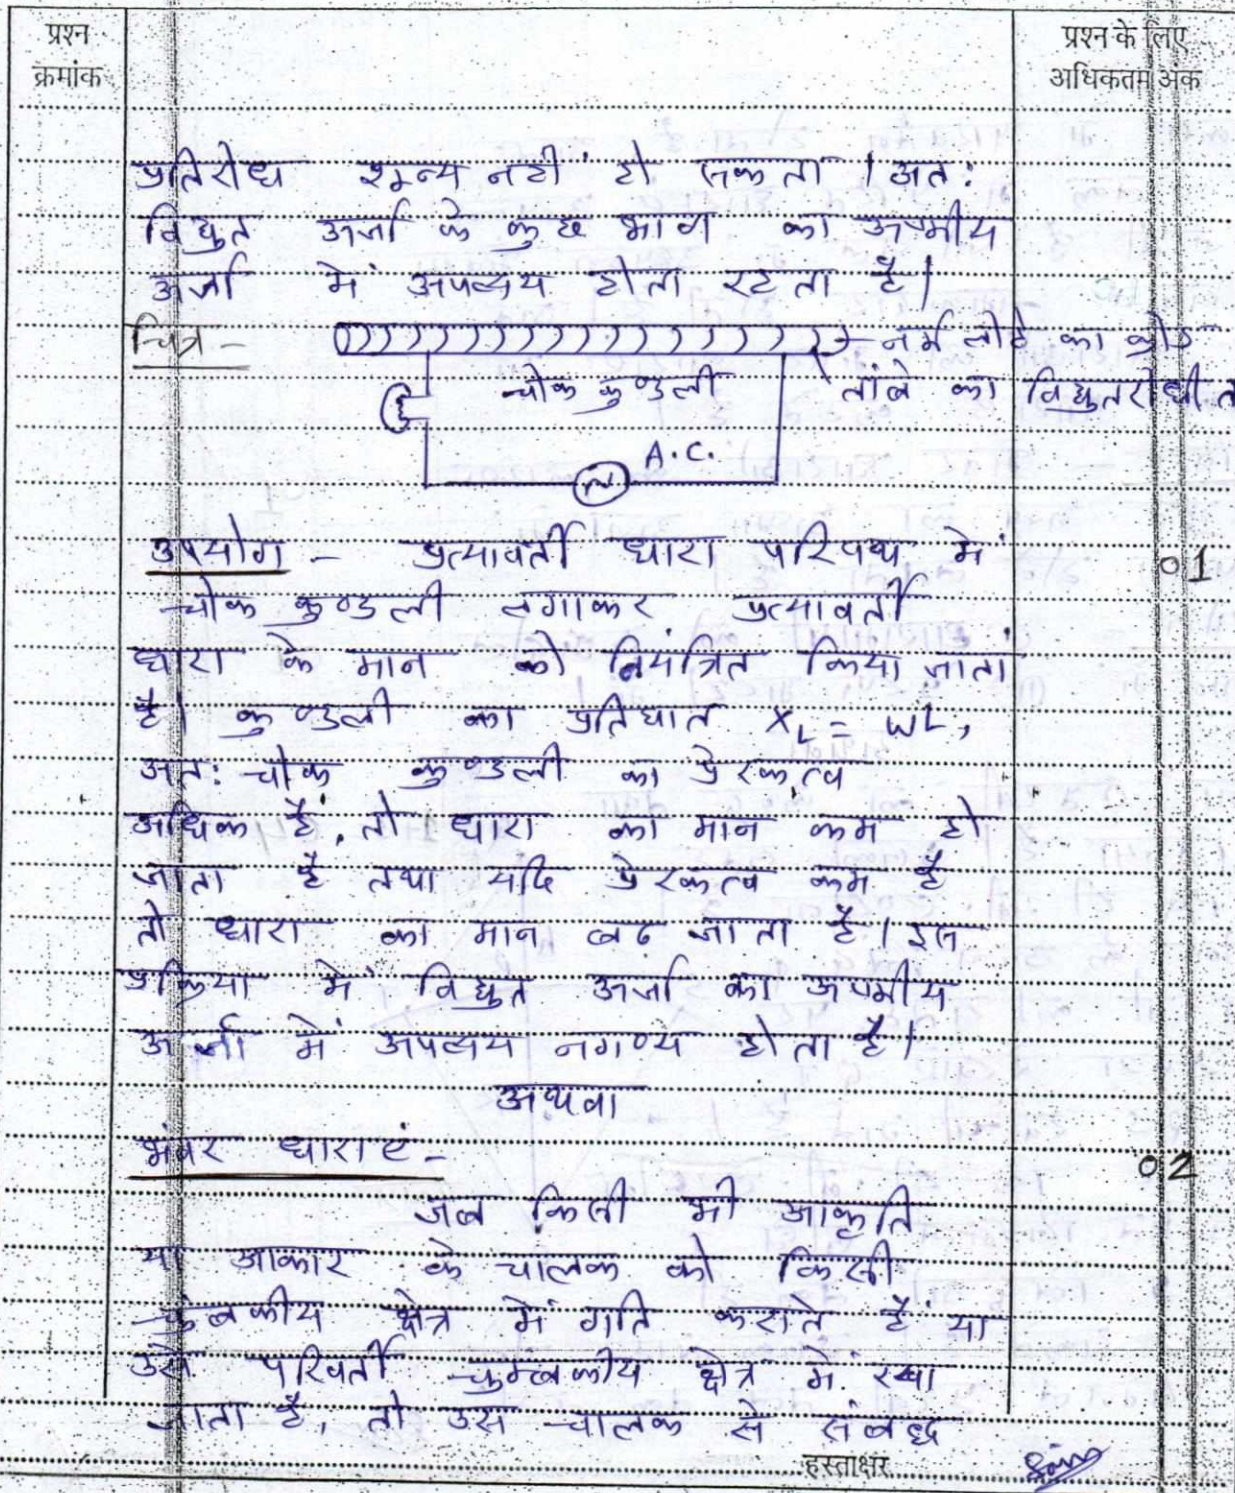 प्रश्न क्रमांक
प्रश्न के लिए अधिकतम अंक
प्रतिरोध शून्य नहीं हो सकता । अत:
विद्युत ऊर्जा के कुछ भाग का ऊष्मीय
ऊर्जा में अपव्यय होता रहता है।
चित्र - नर्म लोहे का क्रोड
चोक कुण्डली तांबे का विद्युतरोधी त
A.C.
उपयोग - प्रत्यावर्ती धारा परिपथ में 01
चोक कुण्डली लगाकर प्रत्यावर्ती
धारा के मान को नियंत्रित किया जाता
है। कुण्डली का प्रतिघात XL = wL,
अत: चोक कुण्डली का प्रेरकत्व
अधिक है, तो धारा का मान कम हो
जाता है तथा यदि प्रेरकत्व कम है
तो धारा का मान बढ जाता है। इस
प्रक्रिया में विद्युत ऊर्जा का ऊष्मीय
ऊर्जा में अपव्यय नगण्य होता है।
अथवा
भंवर धाराएं - 02
जब किसी भी आकृति
या आकार के चालक को किसी
चुंबकीय क्षेत्र में गति कराते हैं या
उसे परिवर्ती चुम्बकीय क्षेत्र में रखा
जाता है, तो उस चालक से संबद्ध
हस्ताक्षर